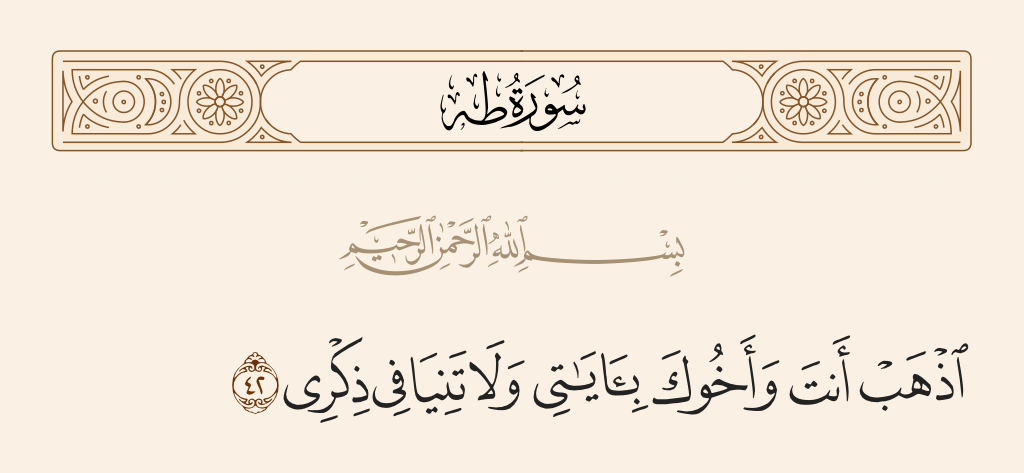 سُورَةُ طه
بِسْمِ ٱللَّهِ ٱلرَّحْمَٰنِ ٱلرَّحِيمِ
ٱذْهَبْ أَنتَ وَأَخُوكَ بِـَٔايَـٰتِى وَلَا تَنِيَا فِى ذِكْرِى ٤٢